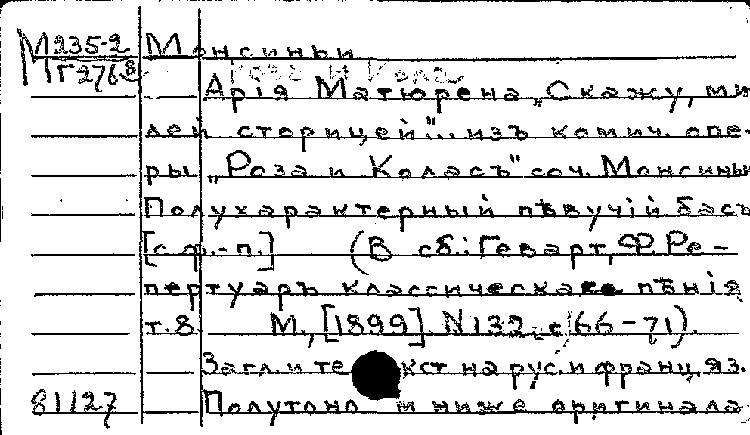 М235-2 Монсиньи
МГ276.8 Роза и Кола
Арія Матюрена „Скажу, ми-
лей сторицей"... изъ комич. опе-
ры „Роза и Коласъ" соч. Монсиньи
Полухарактерный пѣвучій басъ
[с ф.-п.] (В сб.: Геварт, Ф. Ре-
пертуаръ классическаго пѣнія
т.8. М., [1899]. N132. с. 66-71).
Загл. и текст на рус. и франц. яз.
81127 Полутоно и ниже оригинала